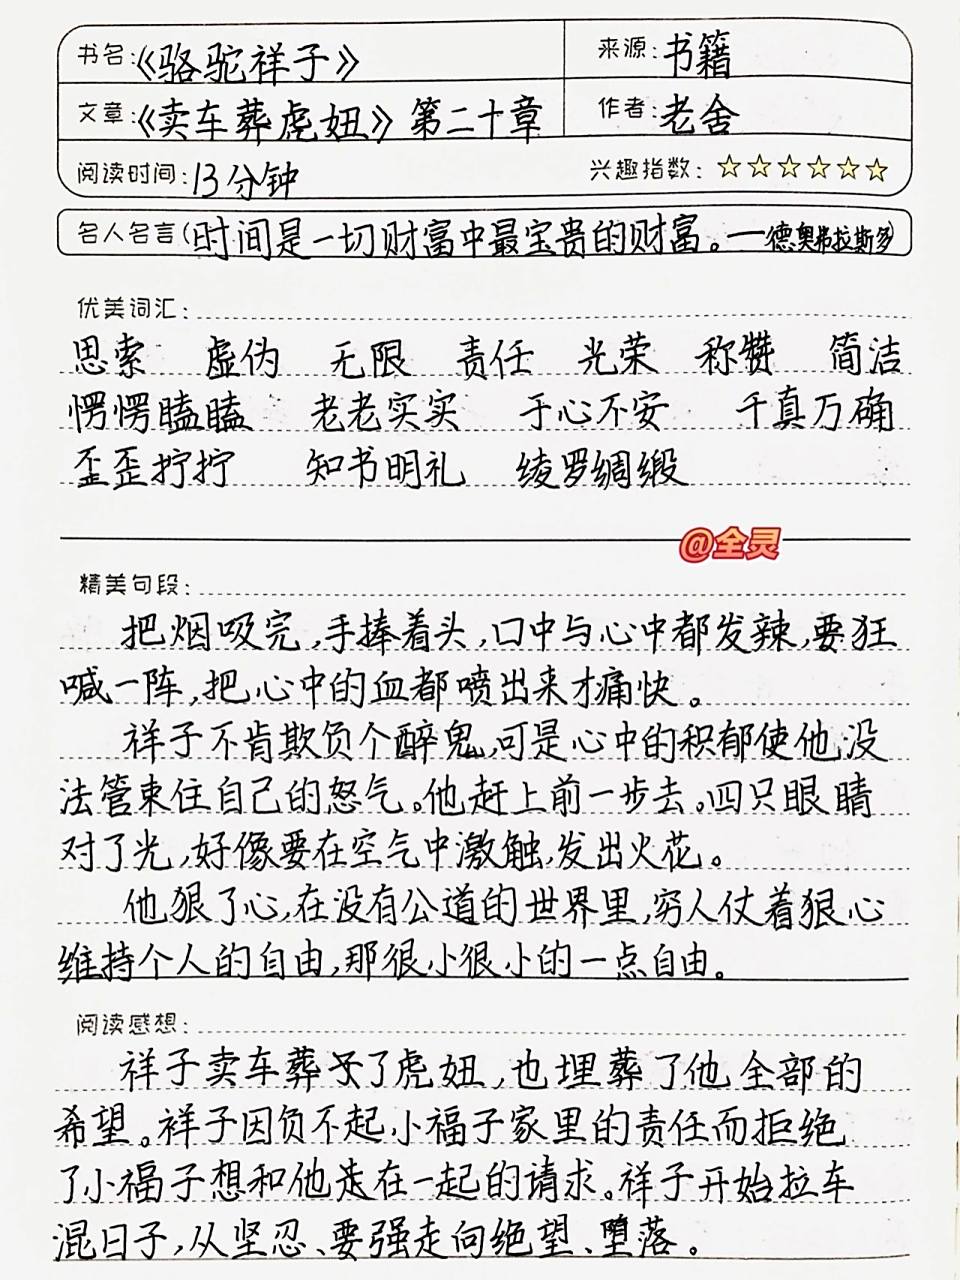 书名:《骆驼祥子》 来源:书籍
文章:《卖车葬虎妞》第二十章 作者:老舍
阅读时间:13分钟 兴趣指数:☆☆☆☆☆☆
名人名言(时间是一切财富中最宝贵的财富。—德奥弗拉斯多)
优美词汇:
思索 虚伪 无限 责任 光荣 称赞 简洁
愣愣瞌瞌 老老实实 于心不安 千真万确
歪歪拧拧 知书明礼 绫罗绸缎
@全灵
精美句段:
把烟吸完,手捧着头,口中与心中都发辣,要狂
喊一阵,把心中的血都喷出来才痛快。
祥子不肯欺负个醉鬼,可是心中的积郁使他没
法管束住自己的怒气。他赶上前一步去。四只眼睛
对了光,好像要在空气中激触,发出火花。
他狠了心,在没有公道的世界里,穷人仗着狠心
维持个人的自由,那很小很小的一点自由。
阅读感想:
祥子卖车葬了虎妞,也埋葬了他全部的
希望。祥子因负不起小福子家里的责任而拒绝
了小福子想和他走在一起的请求。祥子开始拉车
混日子,从坚忍、要强走向绝望、堕落。